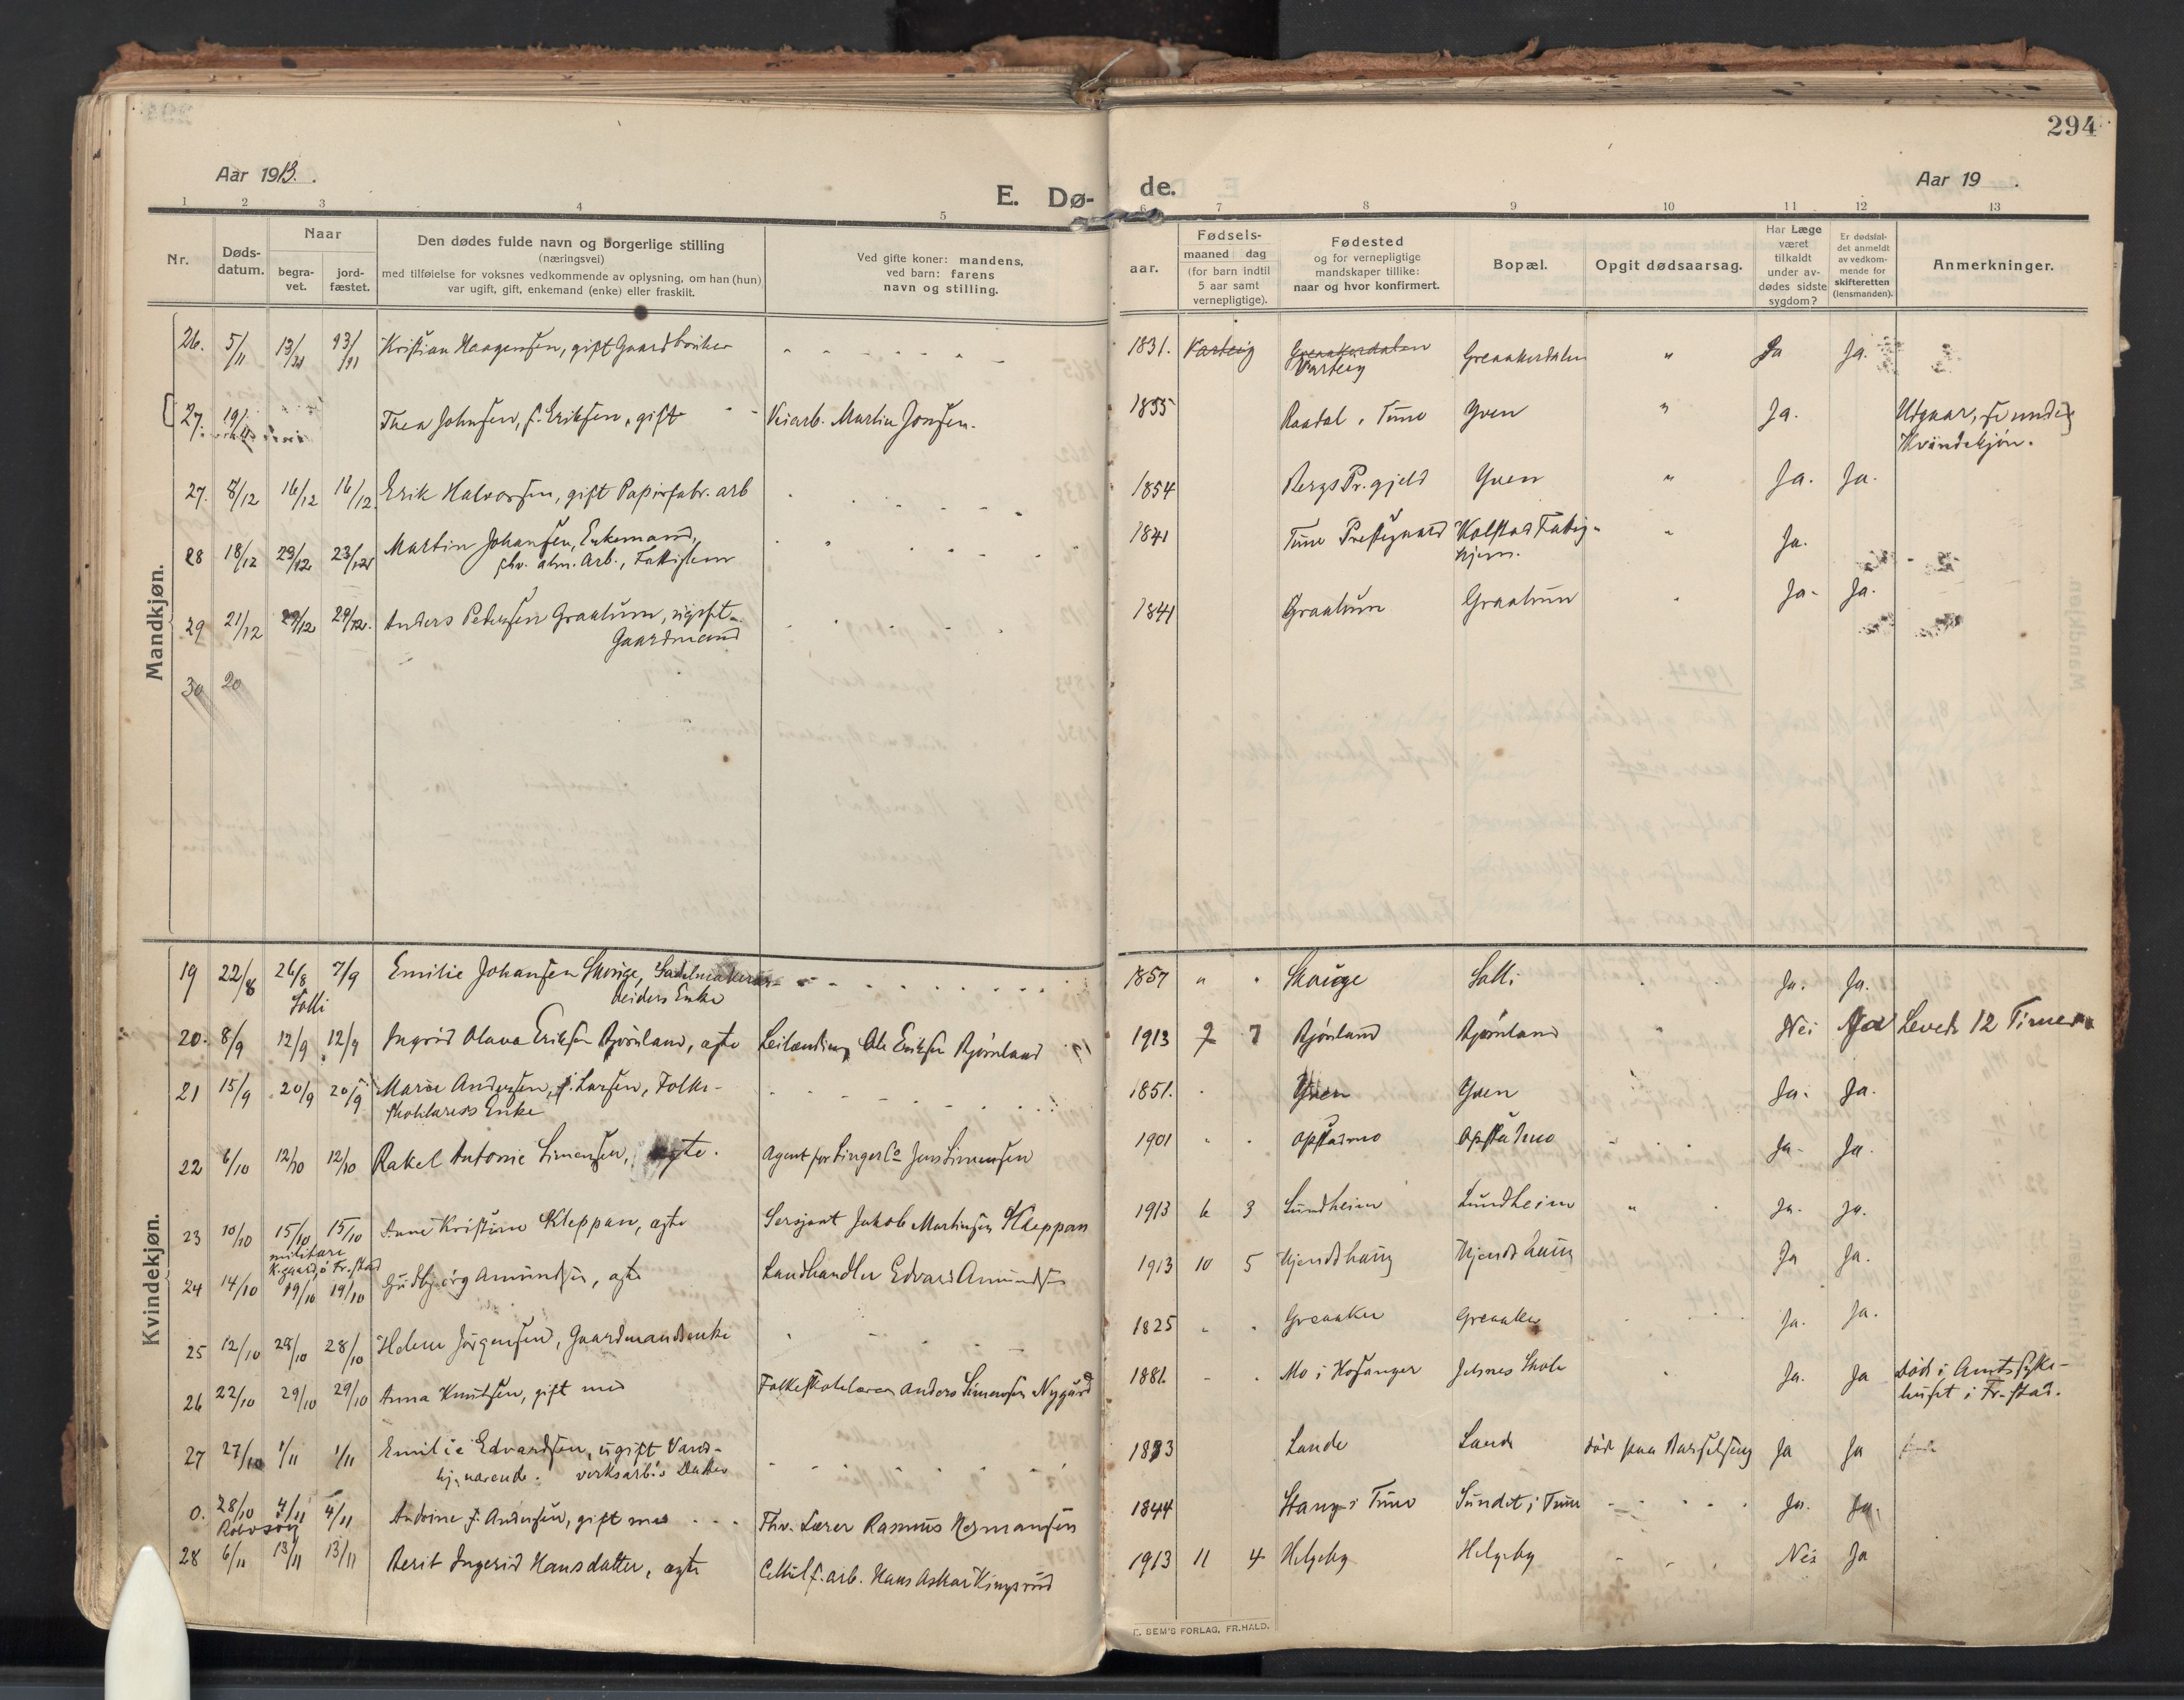 294
Aar 1913.
E. Dø-
de.
Aar 19 .
1 2 3 4 5 6 7 8 9 10 11 12 13
Nr.
Døds-
datum.
Naar
begra-
vet.
jord-
fæstet.
Den dødes fulde navn og borgerlige stilling
(næringsvei)
med tilføielse for voksnes vedkommende av oplysning, om han (hun)
var ugift, gift, enkemand (enke) eller fraskilt.
Ved gifte koner: mandens,
ved barn: farens
navn og stilling.
aar.
Fødsels-
maaned dag
(for barn indtil
5 aar samt
vernepligtige).
Fødested
og for vernepligtige
mandskaper tillike:
naar og hvor konfirmert.
Bopæl.
Opgit dødsaarsag.
Har Læge
været
tilkaldt
under av-
dødes sidste
sygdom?
Er dødsfal-
det anmeldt
av vedkom-
mende for
skifteretten
(lensmanden).
Anmerkninger.
Mandkjøn.
26. 5/11 13/11 13/11 Kristian Haagensen, gift Gaardbruker 1831. Varteig Greaakerdalen Greaakerdalen " Ja Ja.
Varteig
27. 19/11 Thea Johnsen, f. Eriksen, gift Veiarb. Martin Jonsen. 1855 Raadal i Tune Yven " Ja. Utgaar, se under
Kvindekjøn.
27. 8/12 16/12 16/12 Erik Halvorsen, gift Papirfabr. arb 1854 Bergs Pr.gjeld Yven " Ja. Ja.
28 18/12 23/12 23/12 Martin Johansen, Enkemand, 1841 Tune Prestegaard Kolstad Fattig- " Ja.
fhv. alm. Arb., Fattiglem hjem.
29 21/12 29/12 29/12. Anders Pedersen Graalum, ugift 1841 Graalum Graalum Ja- Ja.
Gaardmand
30 20
Kvindekjøn.
19 22/8 26/8 7/9 Emilie Johansen Skouge, Sadelmakerar- 1857 " Skouge Solli Ja. Ja.
Solli beiders Enke
20. 8/9 12/9 12/9 Ingrid Olava Eriksen Bjørnland, ægte Leilænding Ole Eriksen Bjørnland 1913 9 7 Bjørnland Bjørnland " Nei Ja Levede 12 Timer
21 15/9 20/9 20/9 Marie Andersen, f. Larsen, Folke- 1851. Yven Yven Ja. Ja.
skolelærers Enke
22 6/10 12/10 12/10 Rakel Antonie Simensen, ægte. Agent for Singer Co Jens Simensen 1901 Opstadmo Opstadmo Ja- Ja.
23 10/10 15/10 15/10 Anne Kristine Kleppan, ægte Sersjant Jakob Martinsen Kleppan 1913 6 3 Sundheim Sundheim " Ja. Ja.
militære
K.gaard, Fr.stad
24 14/10 19/10 19/10 Gudbjørg Amundsen, ægte Landhandler Edvard Amundsen 1913 10 5 Ja Ja.
25 12/10 28/10 28/10 Helene Jørgensen, Gaardmandsenke 1825 Greaaker Greaaker Ja. Ja.
26 22/10 29/10 29/10 Anna Knutsen, gift med Folkeskolelærer Anders Simensen Nygård 1881. Mo i Hosanger Jelsnes Skole Ja. Ja Død i Amtssyke-
huset i Fr.-stad.
27 27/10 1/11 1/11 Emilie Edvardsen, ugift Vand- 1883 Lande Lande død paa Barselseng Ja Ja
hj.værende. verksarb's Datter
0. 28/10 4/11 4/11 Andrine f. Andersen, gift med Fhv. Lærer Rasmus Hermansen 1844 Stang i Tune Sundet i Tune Ja. Ja.
Rolvsøy
28 6/11 13/11 13/11 Berit Ingerid Hansdatter, ægte Cellul.f.arb. Hans Askar Kingsrud 1913 11 4 Helgeby Helgeby Nei Ja
E. SEM'S FORLAG, FR.HALD.